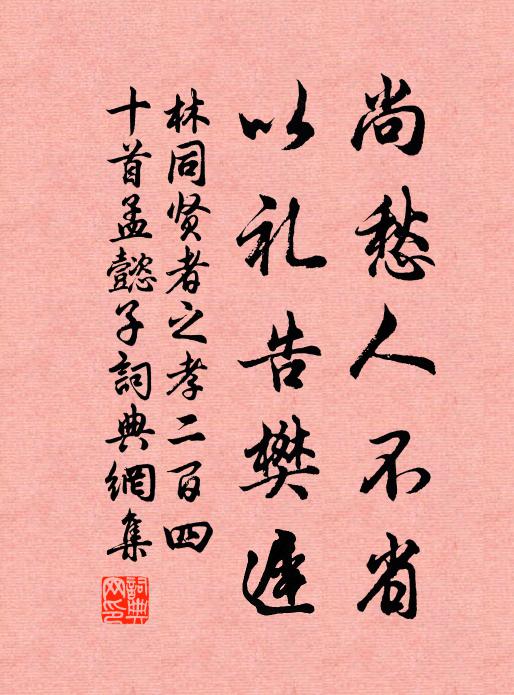 尚愁人不省
以礼告樊遲
林同贤者之孝二百四
十首孟懿子詞典網集
詞典网印